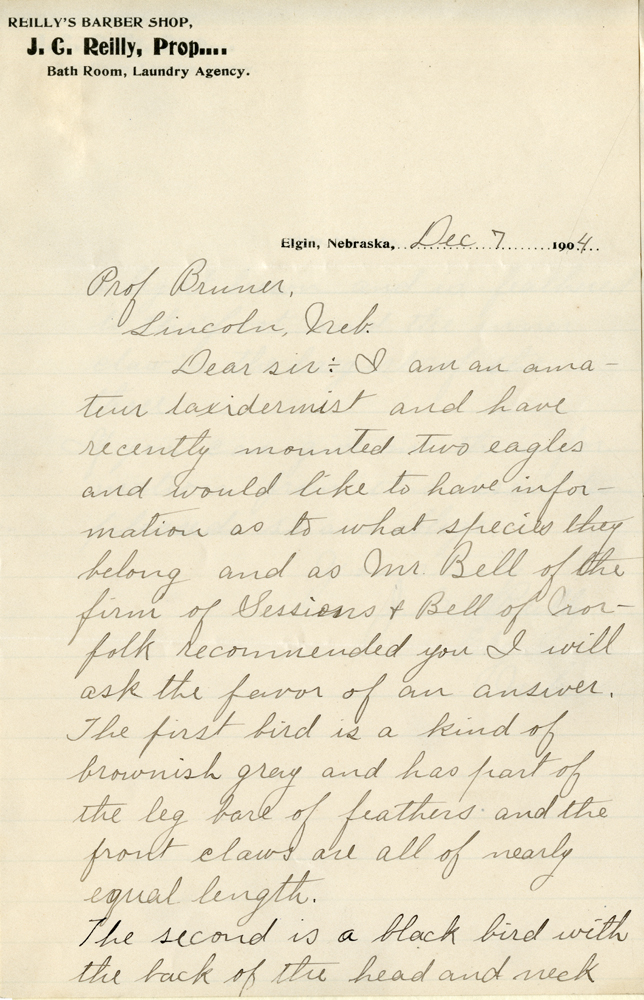 REILLY'S BARBER SHOP,
J. C. Reilly, Prop....
Bath Room, Laundry Agency.
Elgin, Nebraska, Dec 7 1904
Prof Bruner,
Lincoln, Neb.
Dear sir:- I am an ama-
teur taxidermist and have
recently mounted two eagles
and would like to have infor-
mation as to what species they
belong and as Mr. Bell of the
firm of Sessions & Bell of Nor-
folk recommended you I will
ask the favor of an answer.
The first bird is a kind of
brownish gray and has part of
the leg bare of feathers and the
front claws are all of nearly
equal length.
The second is a black bird with
the back of the head and neck